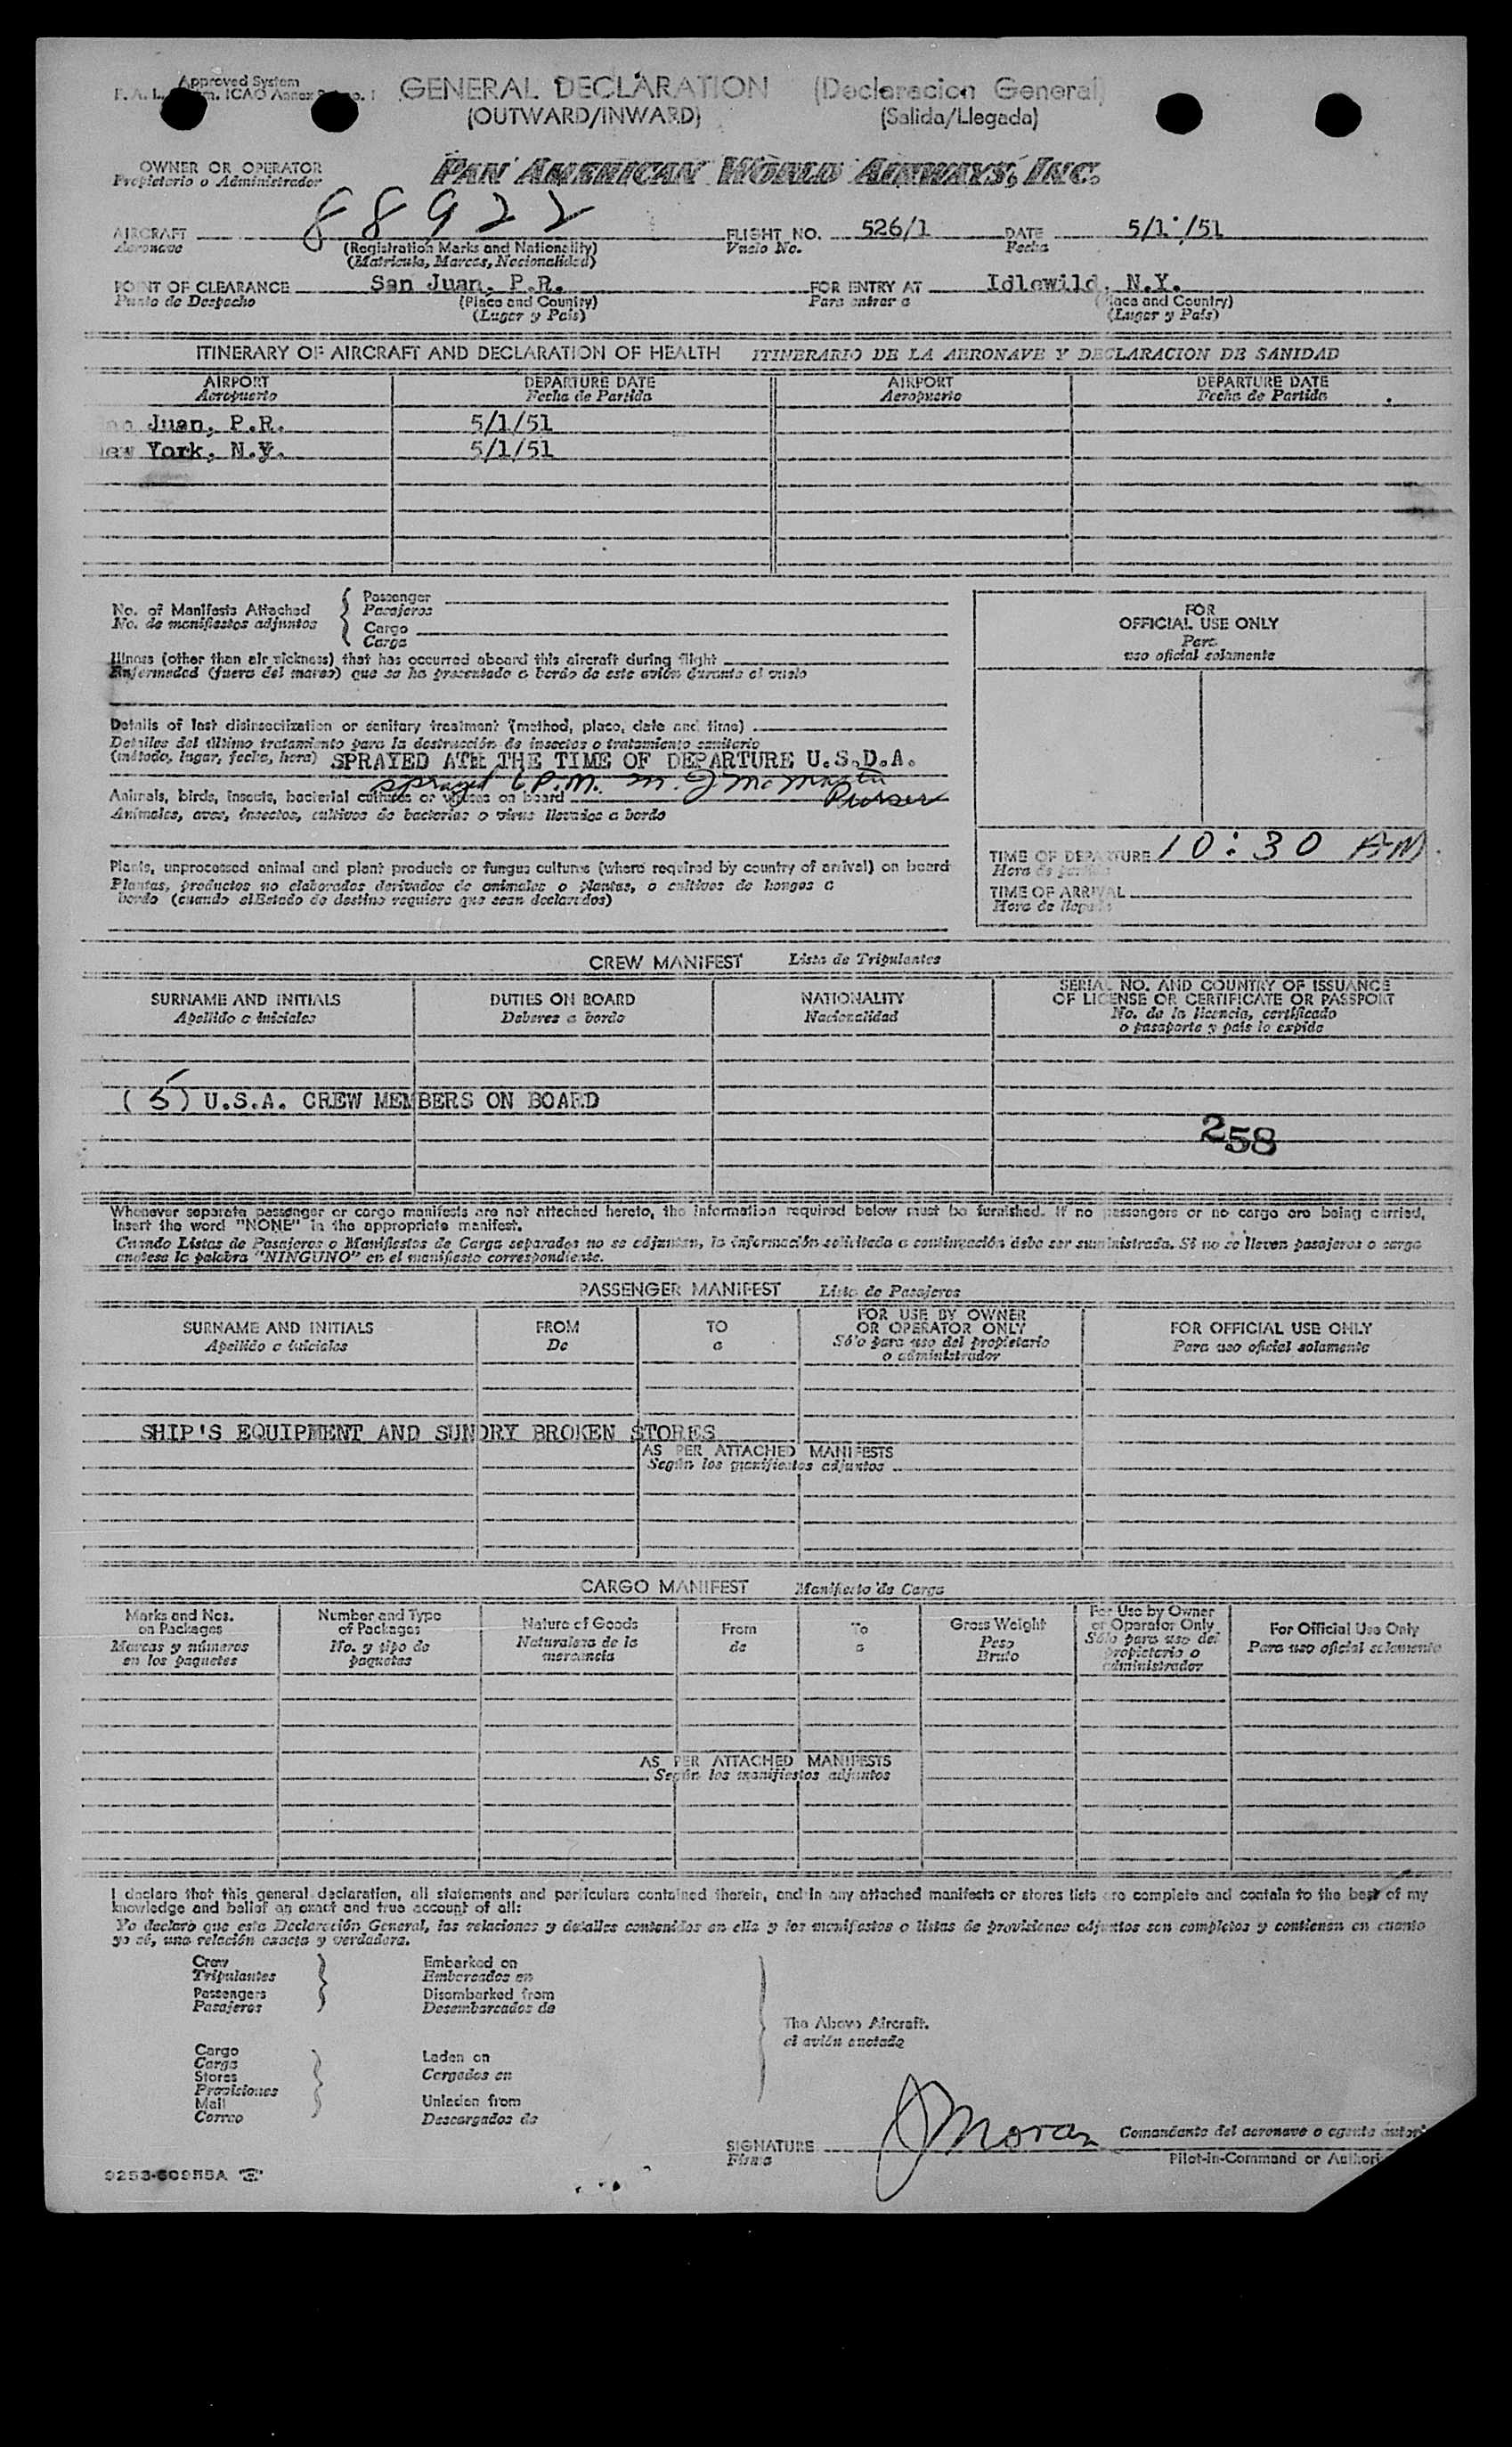 Approved System
F. A. L. ICAO Annex
GENERAL DECLARATION (Declaracion General)
(OUTWARD/INWARD) (Salida/Llegada)
OWNER OR OPERATOR
Propietario o Administrador
PAN AMERICAN WORLD AIRWAYS, INC.
AIRCRAFT 88922 FLIGHT NO. 526/1 DATE 5/1/51
Aeronave (Registration Marks and Nationality) Vuelo No. Fecha
(Matricula, Marcas, Nacionalidad)
POINT OF CLEARANCE San Juan, P.R. FOR ENTRY AT Idlewild, N.Y.
Punto de Despacho (Place and Country) Para entrar a (Place and Country)
(Lugar y Pais) (Lugar y Pais)
ITINERARY OF AIRCRAFT AND DECLARATION OF HEALTH ITINERARIO DE LA AERONAVE Y DECLARACION DE SANIDAD
AIRPORT DEPARTURE DATE AIRPORT DEPARTURE DATE
Aeropuerto Fecha de Partida Aeropuerto Fecha de Partida
San Juan, P.R. 5/1/51
New York, N.Y. 5/1/51
No. of Manifests Attached
No. de manifiestos adjuntos
Passenger
Pasajeros
Cargo
Carga
Illness (other than air sickness) that has occurred aboard this aircraft during flight
Enfermedad (fuera del mareo) que se ha presentado a bordo de este avión durante el vuelo
Details of last disinsectization or sanitary treatment (method, place, date and time)
Detalles del último tratamiento para la destrucción de insectos o tratamiento sanitario
(método, lugar, fecha, hora) SPRAYED AT THE TIME OF DEPARTURE U.S.D.A.
sprayed 6 P.M.
Purser
Animals, birds, insects, bacterial cultures or viruses on board
Animales, aves, insectos, cultivos de bacterias o virus llevados a bordo
Plants, unprocessed animal and plant products or fungus cultures (where required by country of arrival) on board
Plantas, productos no elaborados derivados de animales o plantas, o cultivos de hongos a
bordo (cuando el Estado de destino requiere que sean declarados)
FOR
OFFICIAL USE ONLY
Para
uso oficial solamente
TIME OF DEPARTURE 10:30 AM
Hora de partida
TIME OF ARRIVAL
Hora de llegada
CREW MANIFEST Lista de Tripulantes
SURNAME AND INITIALS DUTIES ON BOARD NATIONALITY SERIAL NO. AND COUNTRY OF ISSUANCE
OF LICENSE OR CERTIFICATE OR PASSPORT
Apellido e iniciales Deberes a bordo Nacionalidad No. de la licencia, certificado
o pasaporte y pais lo expide
(5) U.S.A. CREW MEMBERS ON BOARD
258
Whenever separate passenger or cargo manifests are not attached hereto, the information required below must be furnished. If no passengers or no cargo are being carried,
insert the word "NONE" in the appropriate manifest.
Cuando Listas de Pasajeros o Manifiestos de Carga separados no se adjuntan, la información solicitada a continuación debe ser suministrada. Si no se lleven pasajeros o carga
anotese la palabra "NINGUNO" en el manifiesto correspondiente.
PASSENGER MANIFEST Lista de Pasajeros
SURNAME AND INITIALS FROM TO FOR USE BY OWNER
OR OPERATOR ONLY FOR OFFICIAL USE ONLY
Apellido e iniciales De a Sólo para uso del propietario
o administrador Para uso oficial solamente
SHIP'S EQUIPMENT AND SUNDRY BROKEN STORES
AS PER ATTACHED MANIFESTS
Según los manifiestos adjuntos
CARGO MANIFEST Manifiesto de Carga
Marks and Nos.
on Packages
Marcas y números
en los paquetes
Number and Type
of Packages
No. y tipo de
paquetes
Nature of Goods
Naturaleza de la
mercancia
From
de
To
a
Gross Weight
Peso
Bruto
For Use by Owner
or Operator Only
Sólo para uso del
propietario o
administrador
For Official Use Only
Para uso oficial solamente
AS PER ATTACHED MANIFESTS
Según los manifiestos adjuntos
I declare that this general declaration, all statements and particulars contained therein, and in any attached manifests or stores lists are complete and contain to the best of my
knowledge and belief an exact and true account of all:
Yo declaro que esta Declaración General, las relaciones y detalles contenidos en ella y los manifiestos o listas de provisiones adjuntos son completos y contienen en cuanto
yo sé, una relación exacta y verdadera.
Crew
Tripulantes
Passengers
Pasajeros
Embarked on
Embarcados en
Disembarked from
Desembarcados de
Cargo
Carga
Stores
Provisiones
Mail
Correo
Laden on
Cargados en
Unladen from
Descargados de
The Above Aircraft.
el avión anotado
SIGNATURE J Moran Comandante del aeronave o agente autori
Firma Pilot-in-Command or Authori
9253-60955A